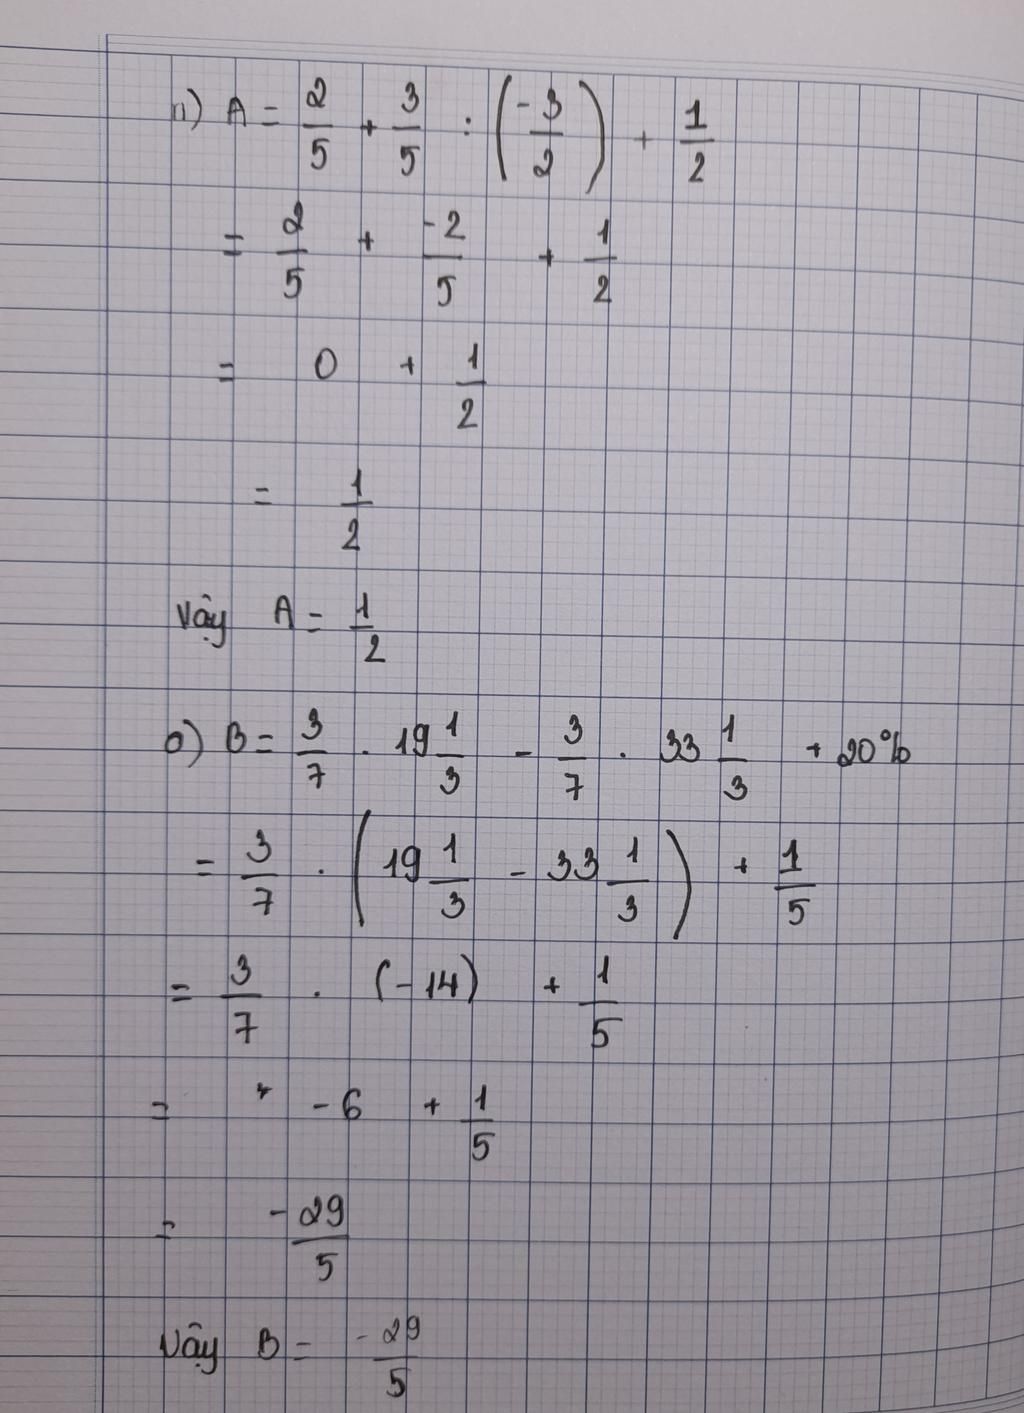 n) A = 2/5 + 3/5 : (-3/2) + 1/2
= 2/5 + -2/5 + 1/2
= 0 + 1/2
= 1/2
Vậy A = 1/2
o) B = 3/7 . 19 1/3 - 3/7 . 33 1/3 + 20%
= 3/7 . (19 1/3 - 33 1/3) + 1/5
= 3/7 . (-14) + 1/5
= -6 + 1/5
= -29/5
Vậy B = -29/5